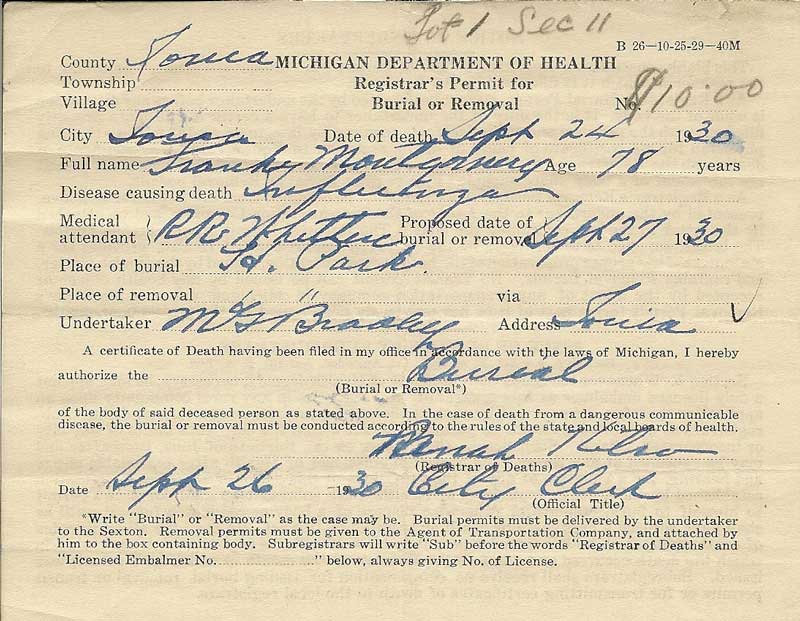 Lot 1 Sec 11
B 26—10-25-29—40M
County Ionia MICHIGAN DEPARTMENT OF HEALTH
Township Registrar's Permit for
Village Burial or Removal No. $10.00
City Ionia Date of death Sept 24 1930
Full name Franky Montgomery Age 78 years
Disease causing death Influenza
Medical attendant R.R. Whitten Proposed date of burial or removal Sept 27 1930
Place of burial H. Park
Place of removal " via
Undertaker Bradley Address Ionia
A certificate of Death having been filed in my office in accordance with the laws of Michigan, I hereby
authorize the Bureal
(Burial or Removal*)
of the body of said deceased person as stated above. In the case of death from a dangerous communicable
disease, the burial or removal must be conducted according to the rules of the state and local boards of health.
Nelson
(Registrar of Deaths)
Date Sept 26 1930 City Clerk
(Official Title)
*Write "Burial" or "Removal" as the case may be. Burial permits must be delivered by the undertaker
to the Sexton. Removal permits must be given to the Agent of Transportation Company, and attached by
him to the box containing body. Subregistrars will write "Sub" before the words "Registrar of Deaths" and
"Licensed Embalmer No. " below, always giving No. of License.